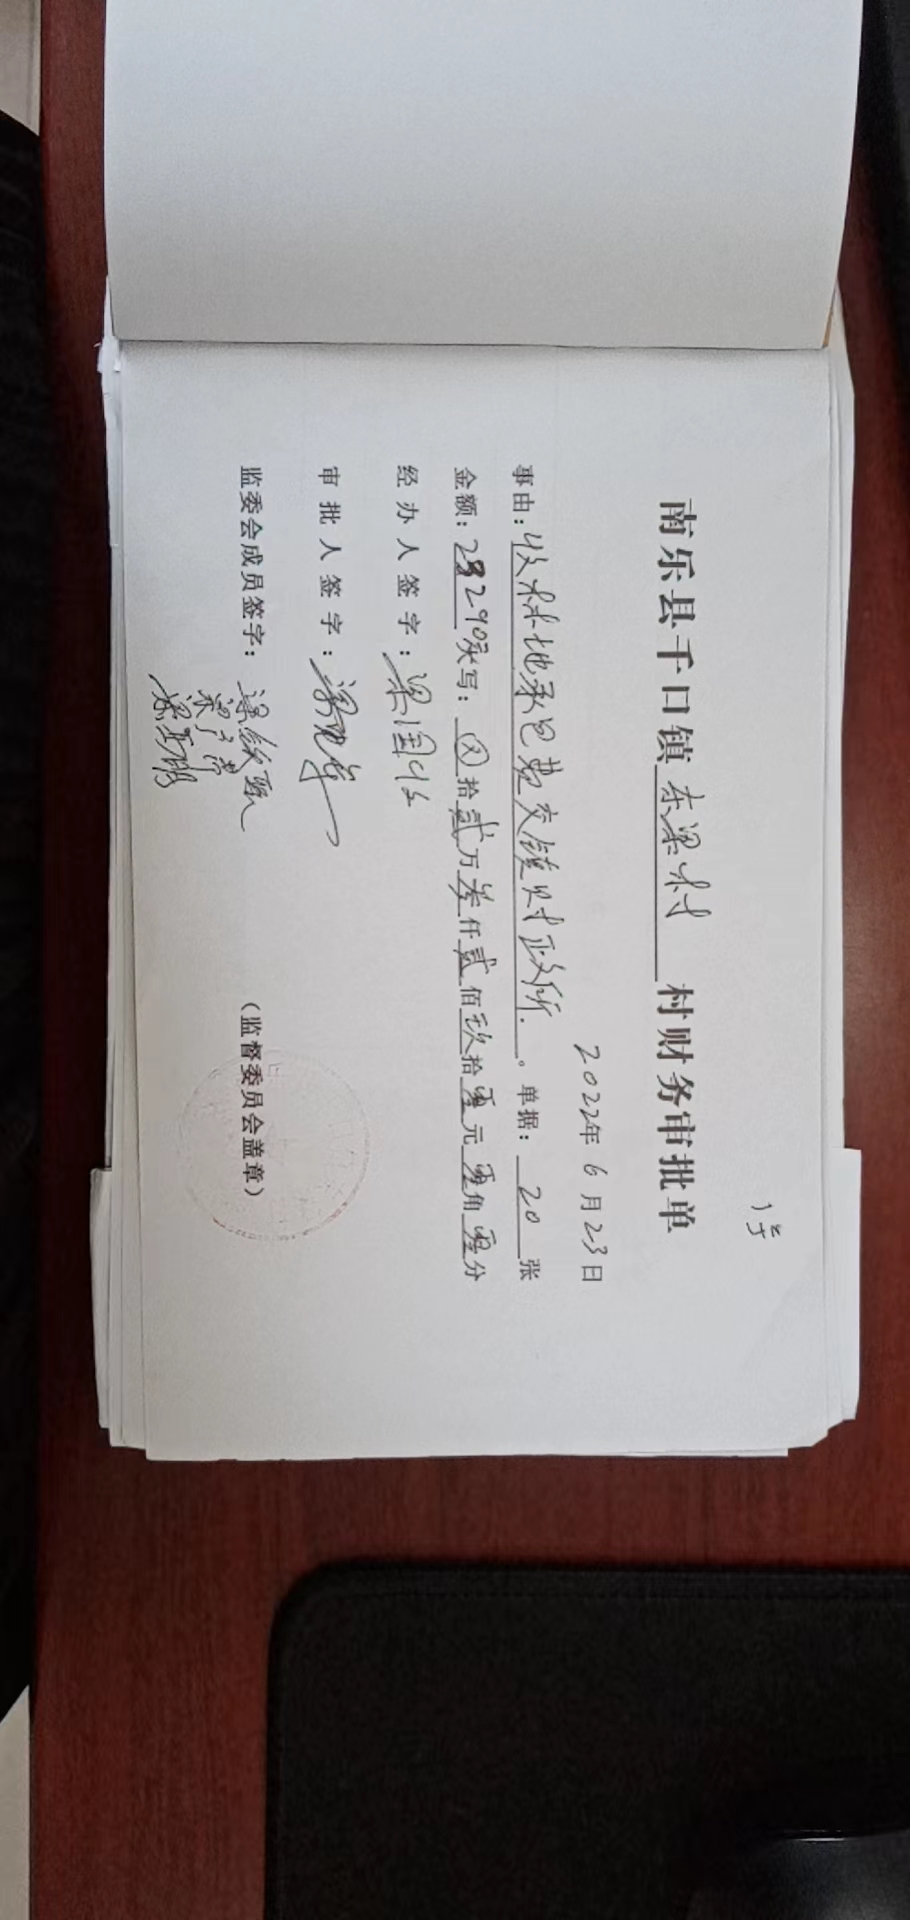 1号
南乐县千口镇东梁村村财务审批单
2022年6月23日
事由:收村地承包费交镇财政所.。单据:20张
金额:23290元大写:⊗拾贰万叁仟贰佰玖拾零元零角零分
经办人签字:梁国收
审批人签字:
监委会成员签字:
(监督委员会盖章)